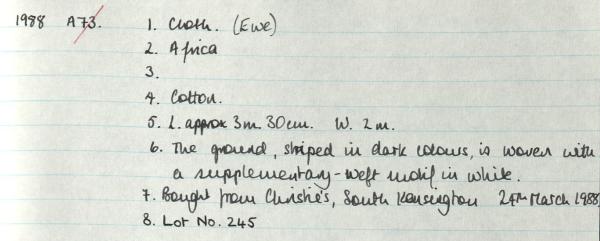 1988 A73. 1. Cloth. (Ewe)
2. Africa
3.
4. Cotton.
5. L. approx 3m. 30cm. W. 2m.
6. The ground, striped in dark colours, is woven with
a supplementary-weft motif in white.
7. Bought from Christie's, South Kensington 24th March 1988
8. Lot No. 245